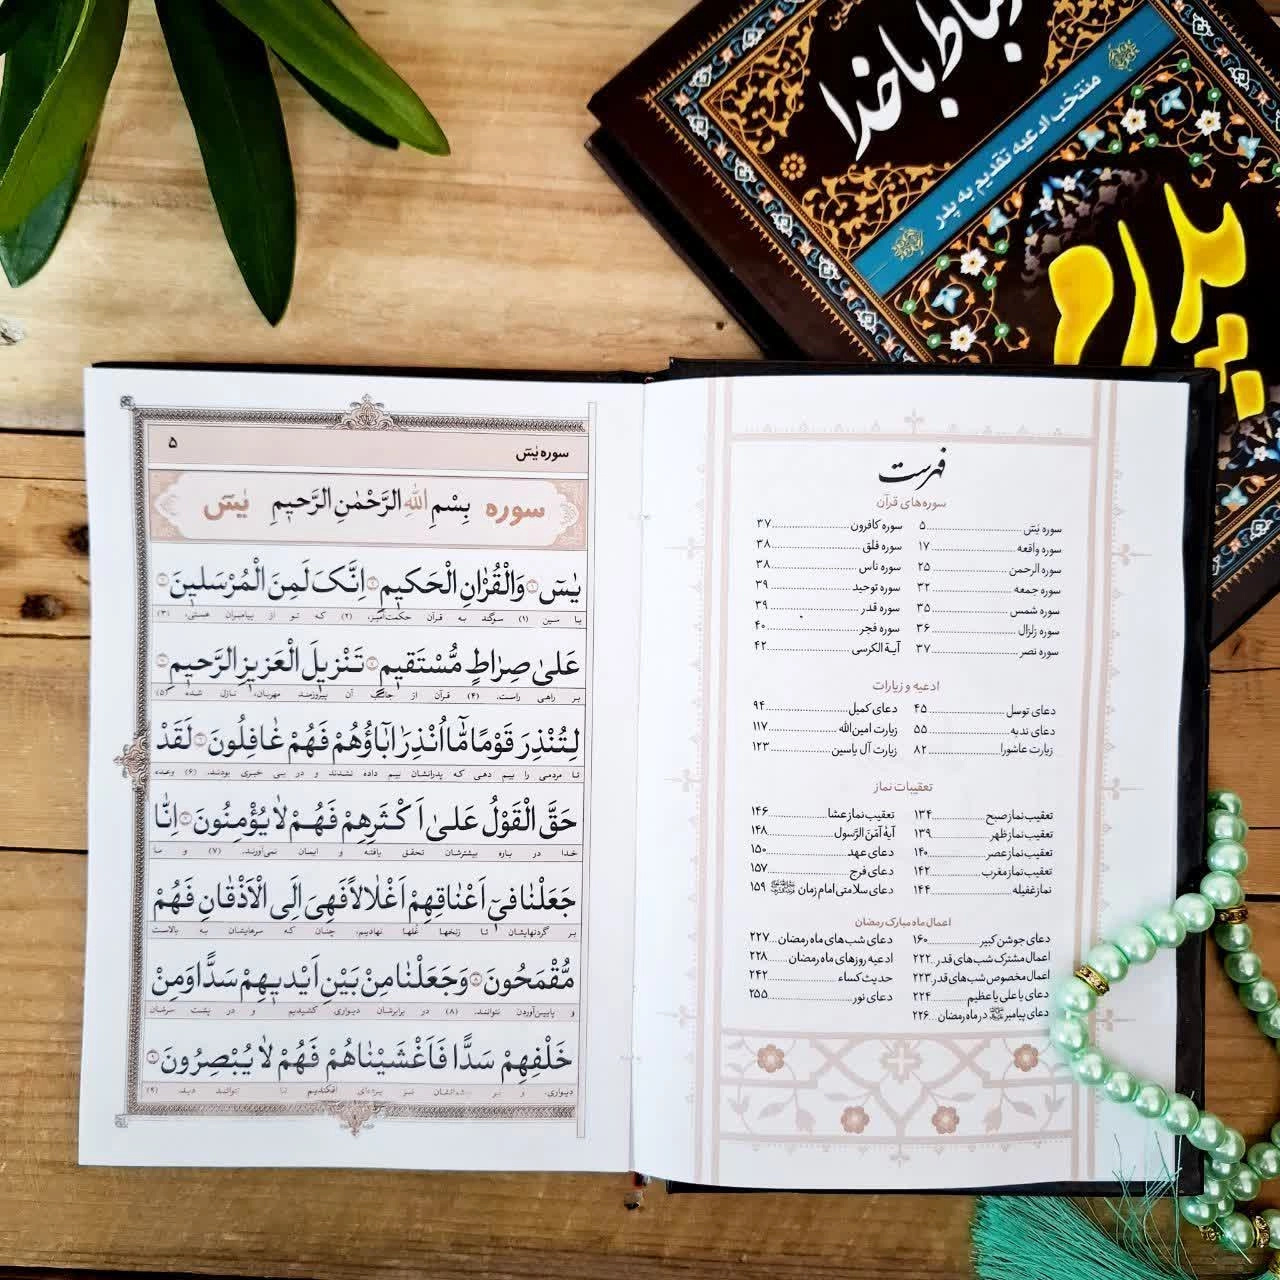 ارتباط با خدا
منتخب ادعیه تقدیم به پدر
پدرم
فهرست
سوره‌های قرآن
سوره یٰسٓ ۵
سوره واقعه ۱۷
سوره الرحمن ۲۵
سوره جمعه ۳۲
سوره شمس ۳۵
سوره زلزال ۳۶
سوره نصر ۳۷
سوره کافرون ۳۷
سوره فلق ۳۸
سوره ناس ۳۸
سوره توحید ۳۹
سوره قدر ۳۹
سوره فجر ۴۰
آیة الکرسی ۴۲
ادعیه و زیارات
دعای توسل ۴۵
دعای ندبه ۵۵
زیارت عاشورا ۸۲
دعای کمیل ۹۴
زیارت امین‌الله ۱۱۷
زیارت آل یاسین ۱۲۳
تعقیبات نماز
تعقیب نماز صبح ۱۳۴
تعقیب نماز ظهر ۱۳۹
تعقیب نماز عصر ۱۴۰
تعقیب نماز مغرب ۱۴۲
نماز غفیله ۱۴۴
تعقیب نماز عشا ۱۴۶
آیهٔ آمَنَ الرَّسول ۱۴۸
دعای عهد ۱۵۰
دعای فرج ۱۵۷
دعای سلامتی امام زمان ۱۵۹
اعمال ماه مبارک رمضان
دعای جوشن کبیر ۱۶۰
اعمال مشترک شب‌های قدر ۲۲۲
اعمال مخصوص شب‌های قدر ۲۲۳
دعای یا علی یا عظیم ۲۲۴
دعای پیامبر ﷺ در ماه رمضان ۲۲۶
دعای شب‌های ماه رمضان ۲۲۷
ادعیه روزهای ماه رمضان ۲۲۸
حدیث کساء ۲۴۲
دعای نور ۲۵۵
سوره یٰسٓ ۵
سوره بِسْمِ اللهِ الرَّحْمٰنِ الرَّحیمِ یٰسٓ
یٰسٓ ۝۱ وَالْقُرْاٰنِ الْحَکیمِ ۝۲ اِنَّکَ لَمِنَ الْمُرْسَلینَ ۝۳
یا سین (۱) سوگند به قرآن حکمت‌آمیز، (۲) که تو از پیامبران هستی، (۳)
عَلیٰ صِرٰاطٍ مُّسْتَقیمٍ ۝۴ تَنْزیلَ الْعَزیزِ الرَّحیمِ ۝۵
بر راهی راست. (۴) قرآن از جانب آن پیروزمند مهربان، نازل شده (۵)
لِتُنْذِرَ قَوْمًا مّٰٓا اُنْذِرَ اٰبٰٓاؤُهُمْ فَهُمْ غٰافِلُونَ ۝۶ لَقَدْ
تا مردمی را بیم دهی که پدرانشان بیم داده نشدند و در بی خبری بودند. (۶) وعده
حَقَّ الْقَوْلُ عَلیٰٓ اَکْثَرِهِمْ فَهُمْ لاٰ یُؤْمِنُونَ ۝۷ اِنّٰا
خدا در باره بیشترشان تحقق یافته و ایمان نمی‌آورند. (۷) و ما
جَعَلْنٰا فیٓ اَعْنٰاقِهِمْ اَغْلاٰلاً فَهِیَ اِلَی الْاَذْقٰانِ فَهُمْ
بر گردنهایشان تا زنخها غُلها نهادیم، چنان که سرهایشان به بالاست
مُقْمَحُونَ ۝۸ وَجَعَلْنٰا مِنْ بَیْنِ اَیْدیهِمْ سَدًّا وَمِنْ
و پایین‌آوردن نتوانند. (۸) در برابرشان دیواری کشیدیم و در پشت سرشان
خَلْفِهِمْ سَدًّا فَاَغْشَیْنٰاهُمْ فَهُمْ لاٰ یُبْصِرُونَ ۝۹
دیواری. و بر چشمانشان نیز پرده‌ای افکندیم تا نتوانند دید. (۹)